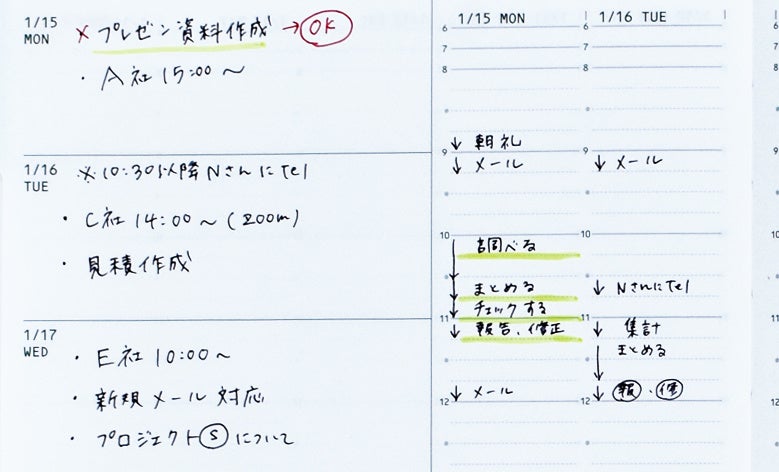 1/15
MON
× プレゼン資料作成 → OK
・A社 15:00〜
1/16
TUE
※10:30以降NさんにTel
・C社 14:00〜(zoom)
・見積作成
1/17
WED
・E社 10:00〜
・新規メール対応
・プロジェクトⓈについて
1/15 MON
6
7
8
9
↓ 朝礼
↓ メール
10
調べる
まとめる
↓ チェックする
11
↓ 報告、修正
↓ メール
12
1/16 TUE
6
7
8
9
↓ メール
10
↓ NさんにTel
11
↓ 集計
まとめる
↓ 報・修
12
6
7
8
9
10
11
12